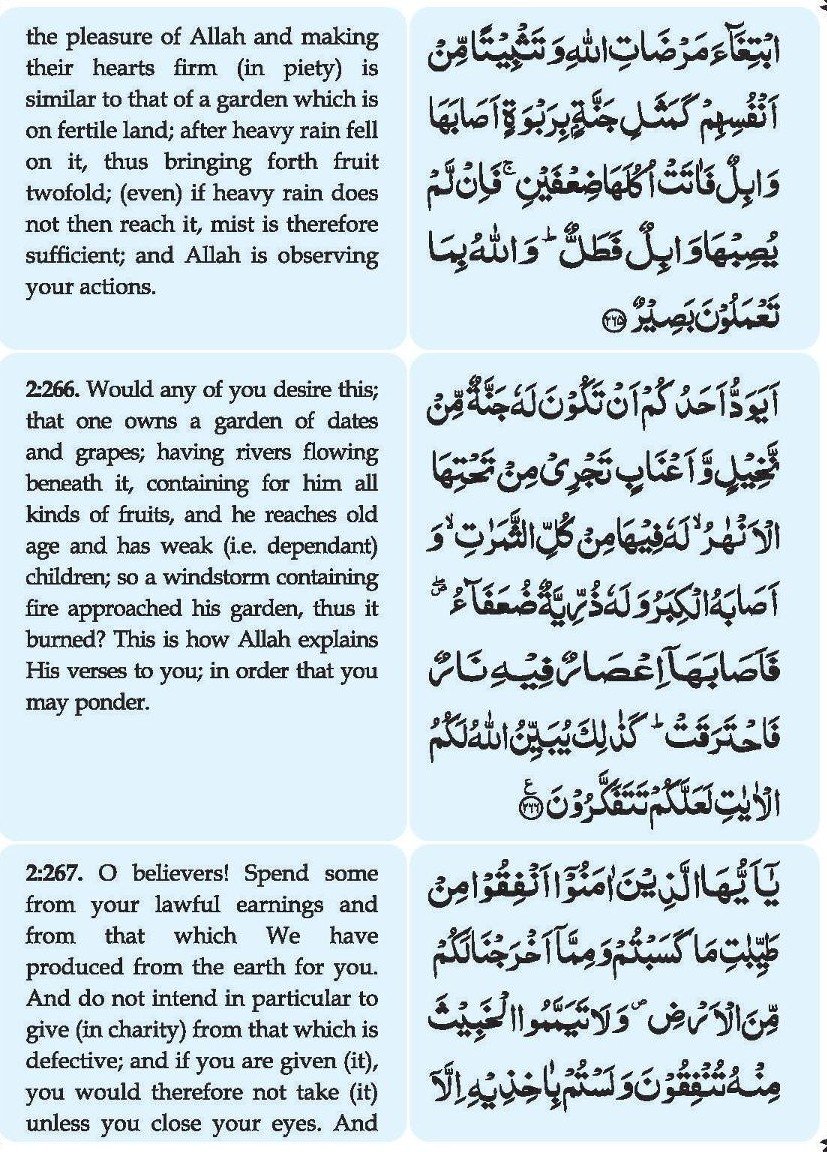 the pleasure of Allah and making
their hearts firm (in piety) is
similar to that of a garden which is
on fertile land; after heavy rain fell
on it, thus bringing forth fruit
twofold; (even) if heavy rain does
not then reach it, mist is therefore
sufficient; and Allah is observing
your actions.
ابْتِغَآءَ مَرْضَاتِ اللّٰهِ وَ تَثْبِیْتًا مِّنْ
اَنْفُسِهِمْ كَمَثَلِ جَنَّةٍۭ بِرَبْوَةٍ اَصَابَهَا
وَابِلٌ فَاٰتَتْ اُكُلَهَا ضِعْفَیْنِ ۚ فَاِنْ لَّمْ
یُصِبْهَا وَابِلٌ فَطَلٌّ ؕ وَ اللّٰهُ بِمَا
تَعْمَلُوْنَ بَصِیْرٌ ﴿۲۶۵﴾
2:266. Would any of you desire this;
that one owns a garden of dates
and grapes; having rivers flowing
beneath it, containing for him all
kinds of fruits, and he reaches old
age and has weak (i.e. dependant)
children; so a windstorm containing
fire approached his garden, thus it
burned? This is how Allah explains
His verses to you; in order that you
may ponder.
اَیَوَدُّ اَحَدُكُمْ اَنْ تَكُوْنَ لَهٗ جَنَّةٌ مِّنْ
نَّخِیْلٍ وَّ اَعْنَابٍ تَجْرِیْ مِنْ تَحْتِهَا
الْاَنْهٰرُ ۙ لَهٗ فِیْهَا مِنْ كُلِّ الثَّمَرٰتِ ۙ وَ
اَصَابَهُ الْكِبَرُ وَ لَهٗ ذُرِّیَّةٌ ضُعَفَآءُ ۪ۖ
فَاَصَابَهَاۤ اِعْصَارٌ فِیْهِ نَارٌ
فَاحْتَرَقَتْ ؕ كَذٰلِكَ یُبَیِّنُ اللّٰهُ لَكُمُ
الْاٰیٰتِ لَعَلَّكُمْ تَتَفَكَّرُوْنَ ﴿۲۶۶﴾ ع
2:267. O believers! Spend some
from your lawful earnings and
from that which We have
produced from the earth for you.
And do not intend in particular to
give (in charity) from that which is
defective; and if you are given (it),
you would therefore not take (it)
unless you close your eyes. And
یٰۤاَیُّهَا الَّذِیْنَ اٰمَنُوْۤا اَنْفِقُوْا مِنْ
طَیِّبٰتِ مَا كَسَبْتُمْ وَ مِمَّاۤ اَخْرَجْنَا لَكُمْ
مِّنَ الْاَرْضِ ۪ وَ لَا تَیَمَّمُوا الْخَبِیْثَ
مِنْهُ تُنْفِقُوْنَ وَ لَسْتُمْ بِاٰخِذِیْهِ اِلَّاۤ